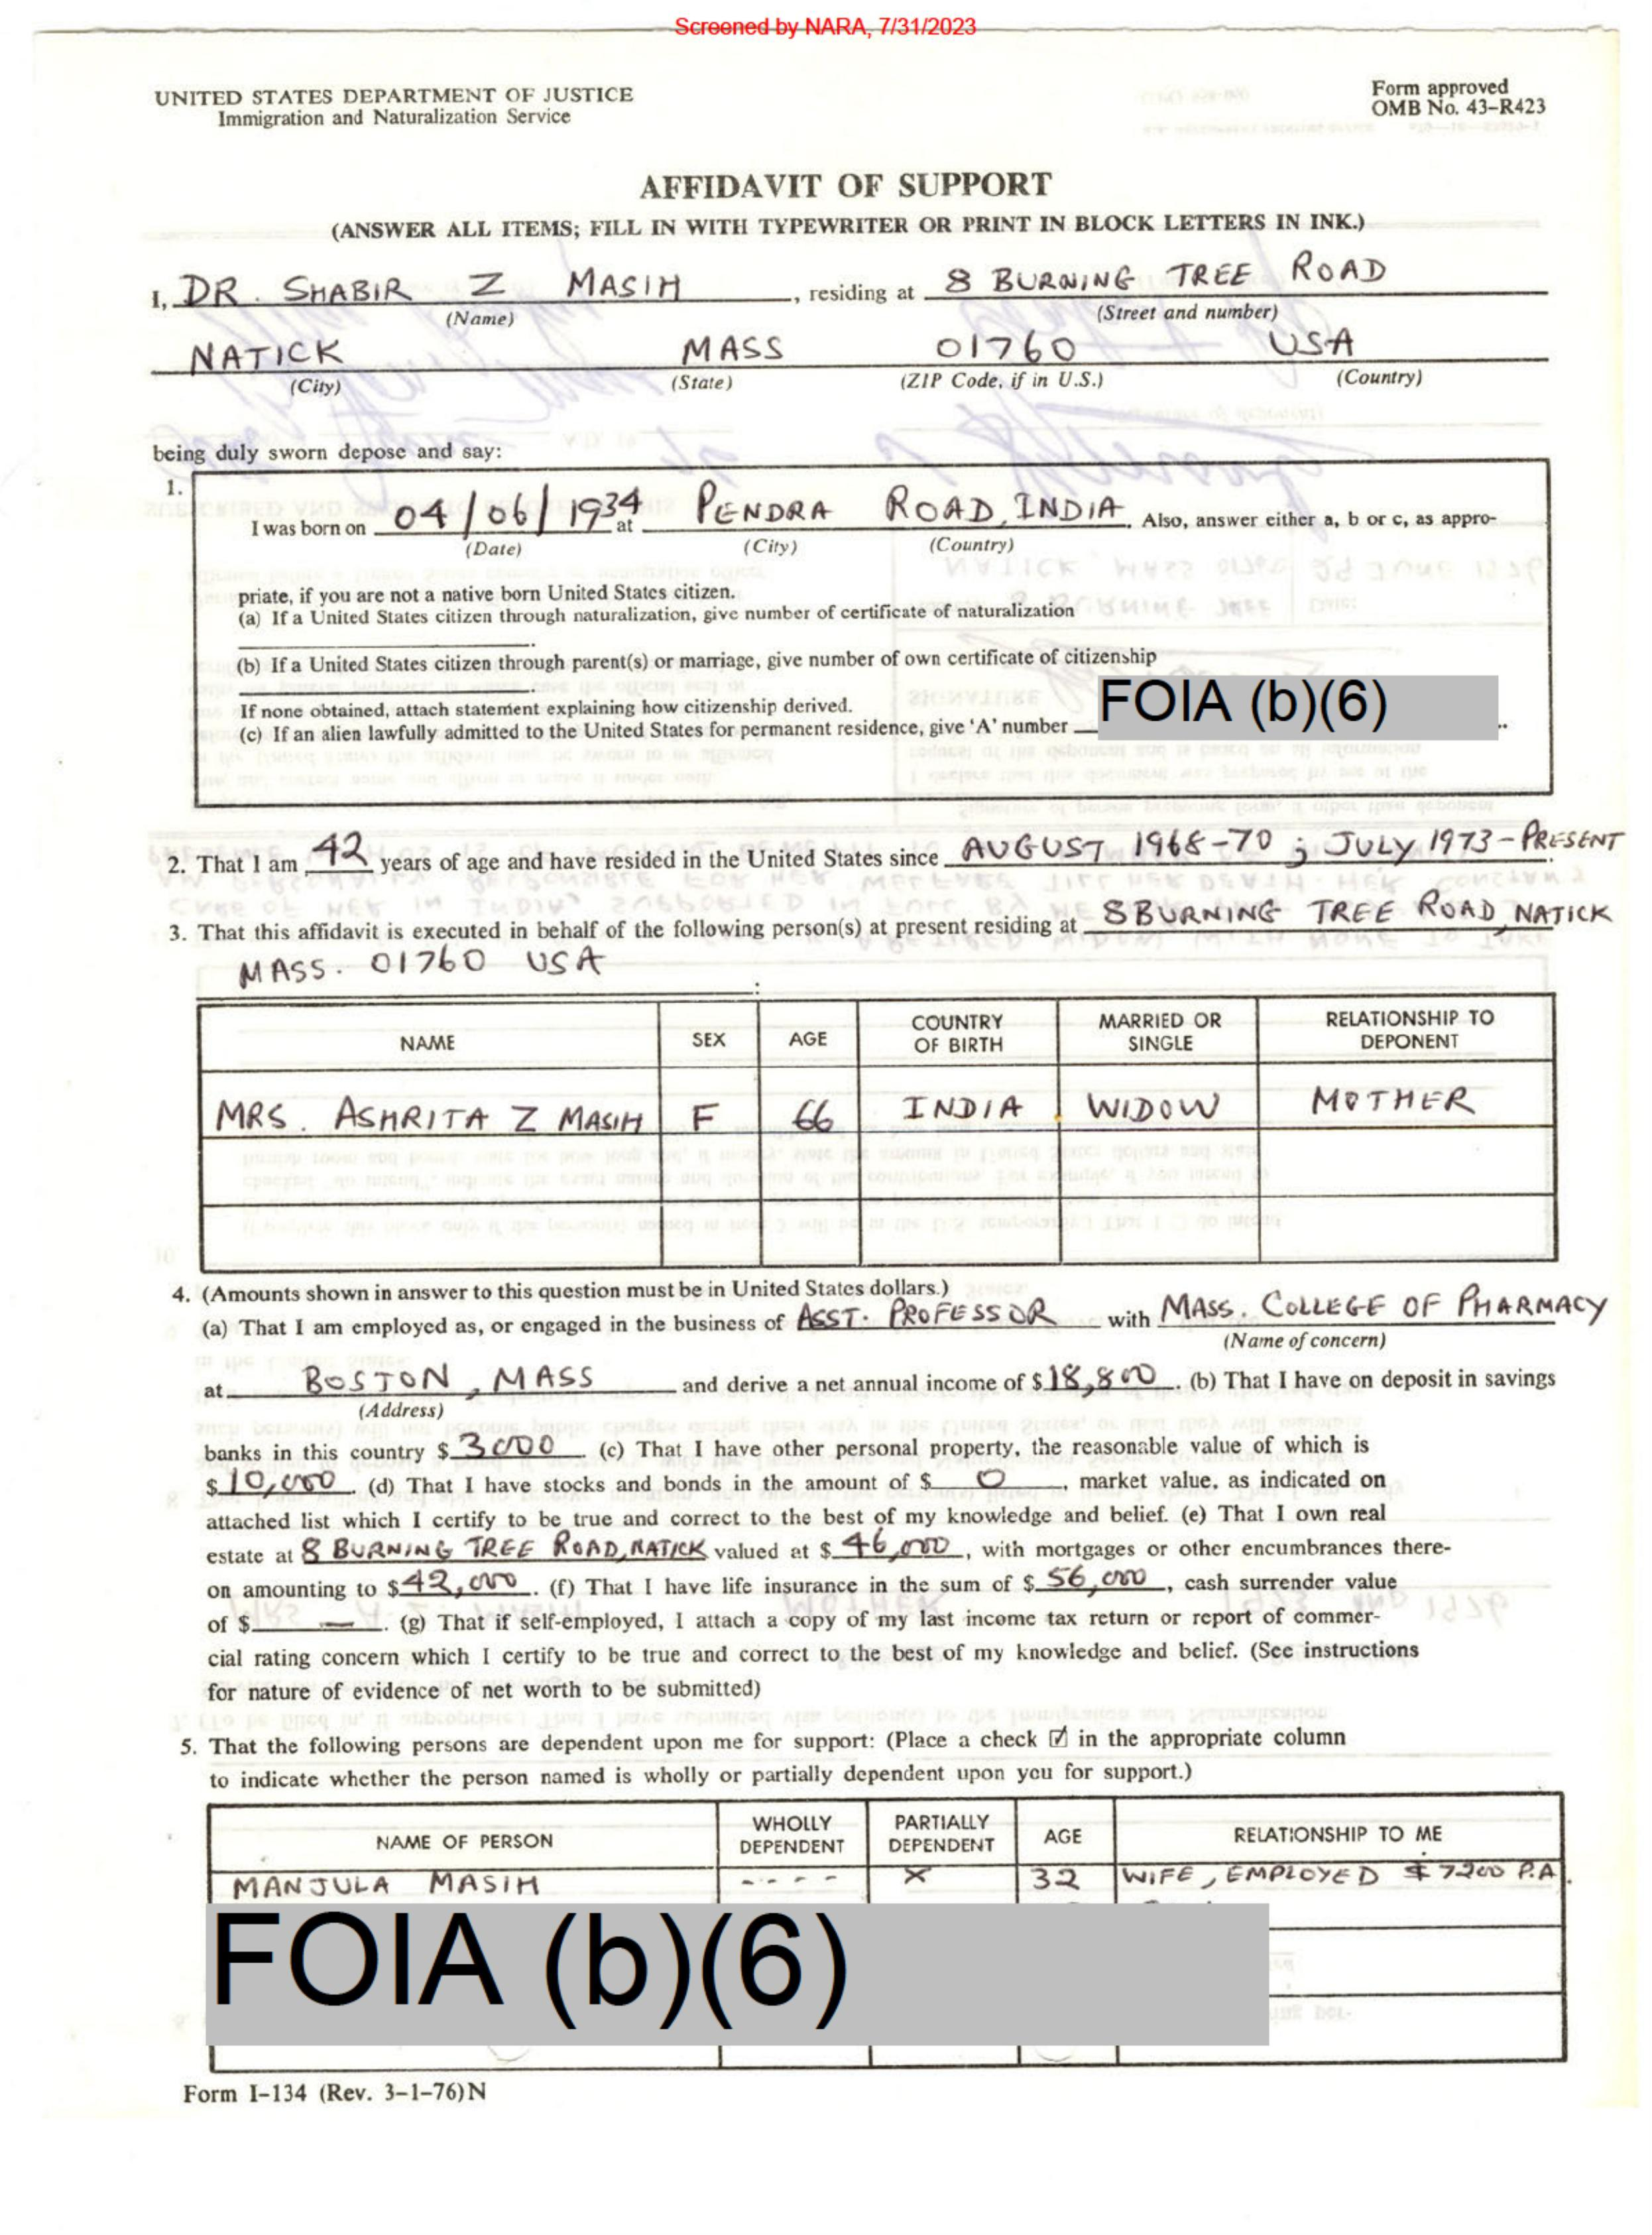 Screened by NARA, 7/31/2023
UNITED STATES DEPARTMENT OF JUSTICE
Immigration and Naturalization Service
Form approved
OMB No. 43-R423
AFFIDAVIT OF SUPPORT
(ANSWER ALL ITEMS; FILL IN WITH TYPEWRITER OR PRINT IN BLOCK LETTERS IN INK.)
I, DR. SHABIR Z MASIH, residing at 8 BURNING TREE ROAD
(Name) (Street and number)
NATICK MASS 01760 USA
(City) (State) (ZIP Code, if in U.S.) (Country)
being duly sworn depose and say:
1.
I was born on 04/06/1934 at PENDRA ROAD, INDIA. Also, answer either a, b or c, as appro-
(Date) (City) (Country)
priate, if you are not a native born United States citizen.
(a) If a United States citizen through naturalization, give number of certificate of naturalization
(b) If a United States citizen through parent(s) or marriage, give number of own certificate of citizenship
If none obtained, attach statement explaining how citizenship derived.
(c) If an alien lawfully admitted to the United States for permanent residence, give 'A' number FOIA (b)(6)
2. That I am 42 years of age and have resided in the United States since AUGUST 1968-70; JULY 1973-PRESENT.
3. That this affidavit is executed in behalf of the following person(s) at present residing at 8 BURNING TREE ROAD, NATICK
MASS. 01760 USA :
NAME SEX AGE COUNTRY OF BIRTH MARRIED OR SINGLE RELATIONSHIP TO DEPONENT
MRS. ASHRITA Z MASIH F 66 INDIA WIDOW MOTHER
4. (Amounts shown in answer to this question must be in United States dollars.)
(a) That I am employed as, or engaged in the business of ASST. PROFESSOR with MASS. COLLEGE OF PHARMACY
(Name of concern)
at BOSTON, MASS and derive a net annual income of $ 18,800. (b) That I have on deposit in savings
(Address)
banks in this country $ 3000. (c) That I have other personal property, the reasonable value of which is
$ 10,000. (d) That I have stocks and bonds in the amount of $ 0, market value, as indicated on
attached list which I certify to be true and correct to the best of my knowledge and belief. (e) That I own real
estate at 8 BURNING TREE ROAD, NATICK valued at $ 46,000, with mortgages or other encumbrances there-
on amounting to $ 42,000. (f) That I have life insurance in the sum of $ 56,000, cash surrender value
of $ —. (g) That if self-employed, I attach a copy of my last income tax return or report of commer-
cial rating concern which I certify to be true and correct to the best of my knowledge and belief. (See instructions
for nature of evidence of net worth to be submitted)
5. That the following persons are dependent upon me for support: (Place a check ☑ in the appropriate column
to indicate whether the person named is wholly or partially dependent upon you for support.)
NAME OF PERSON WHOLLY DEPENDENT PARTIALLY DEPENDENT AGE RELATIONSHIP TO ME
MANJULA MASIH ---- X 32 WIFE, EMPLOYED $7200 P.A.
FOIA (b)(6)
Form I-134 (Rev. 3-1-76)N